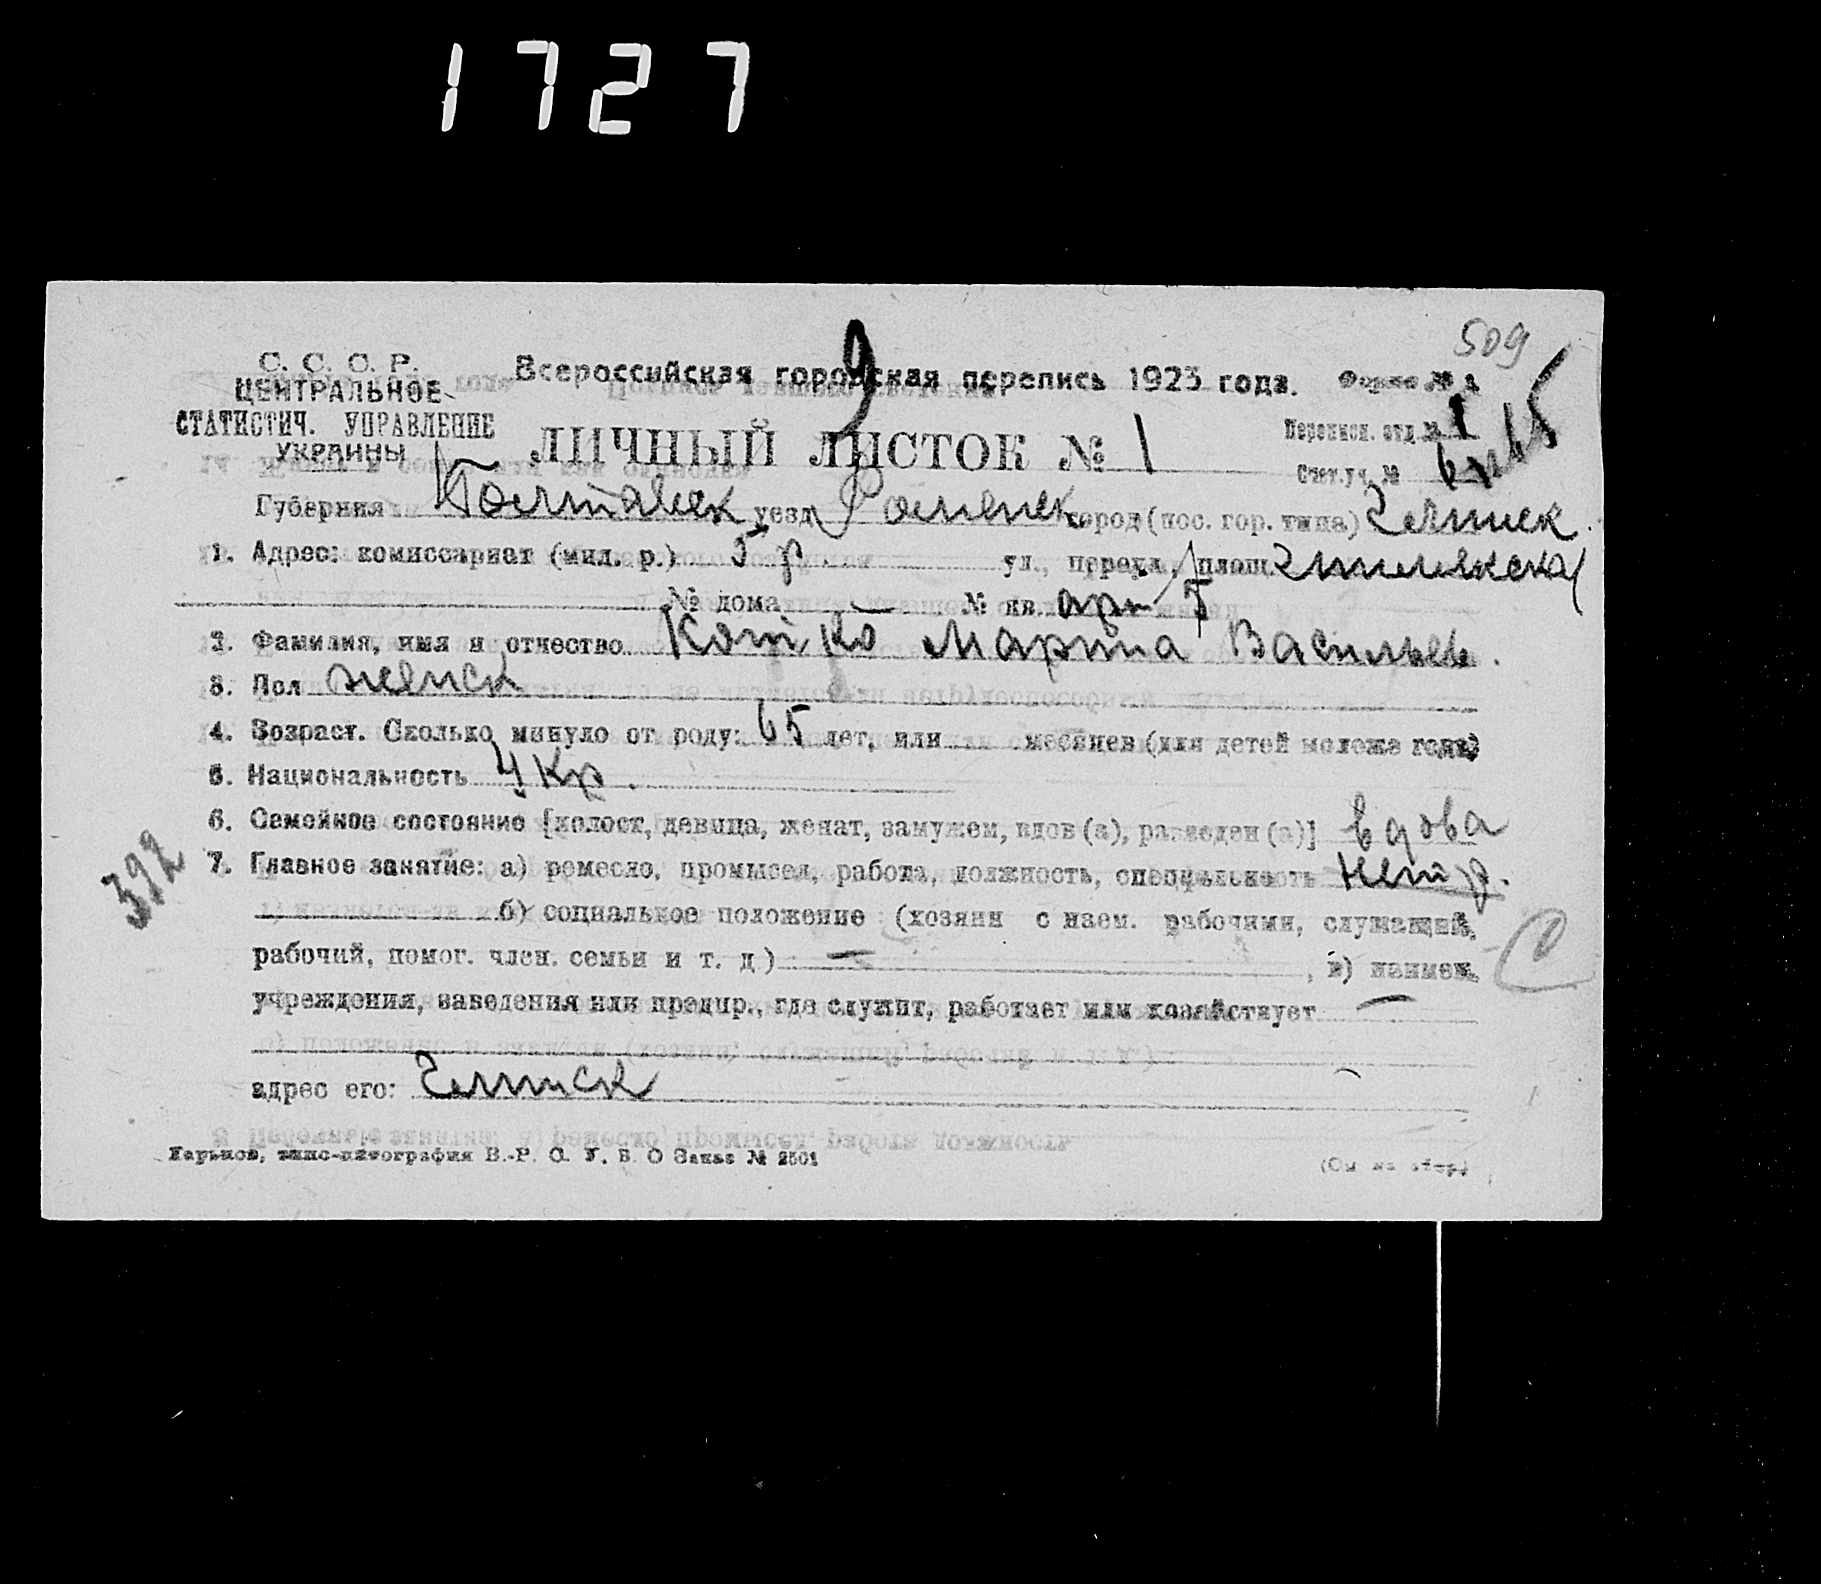 1727
509
С. С. С. Р.
ЦЕНТРАЛЬНОЕ
СТАТИСТИЧ. УПРАВЛЕНИЕ
УКРАИНЫ
Всероссийская городская перепись 1923 года. Форма № 1
9
ЛИЧНЫЙ ЛИСТОК № 1
Переписн. отд. № 1
Счет. уч. №
Губерния Полтавск уезд Роменск город (пос. гор. типа) Глинск.
1. Адрес: комиссариат (мил. р.) 5 р ул., переул., площ.
№ дома — № кв. 5
2. Фамилия, имя и отчество Котко Марфа Васильев.
3. Пол женск
4. Возраст. Сколько минуло от роду: 65 лет, или месяцев (для детей моложе года)
5. Национальность Укр.
6. Семейное состояние [холост, девица, женат, замужем, вдов (а), разведен (а)] вдова
392
7. Главное занятие: а) ремесло, промысел, работа, должность, специальность
б) социальное положение (хозяин с наем. рабочими, служащий,
рабочий, помог. член. семьи и т. д.) — , в) наимен.
учреждения, заведения или предпр., где служит, работает или хозяйствует —
адрес его: Глинск
Харьков, типо-литография В.-Р. С. У. В. О Заказ № 2501
(См на обор)